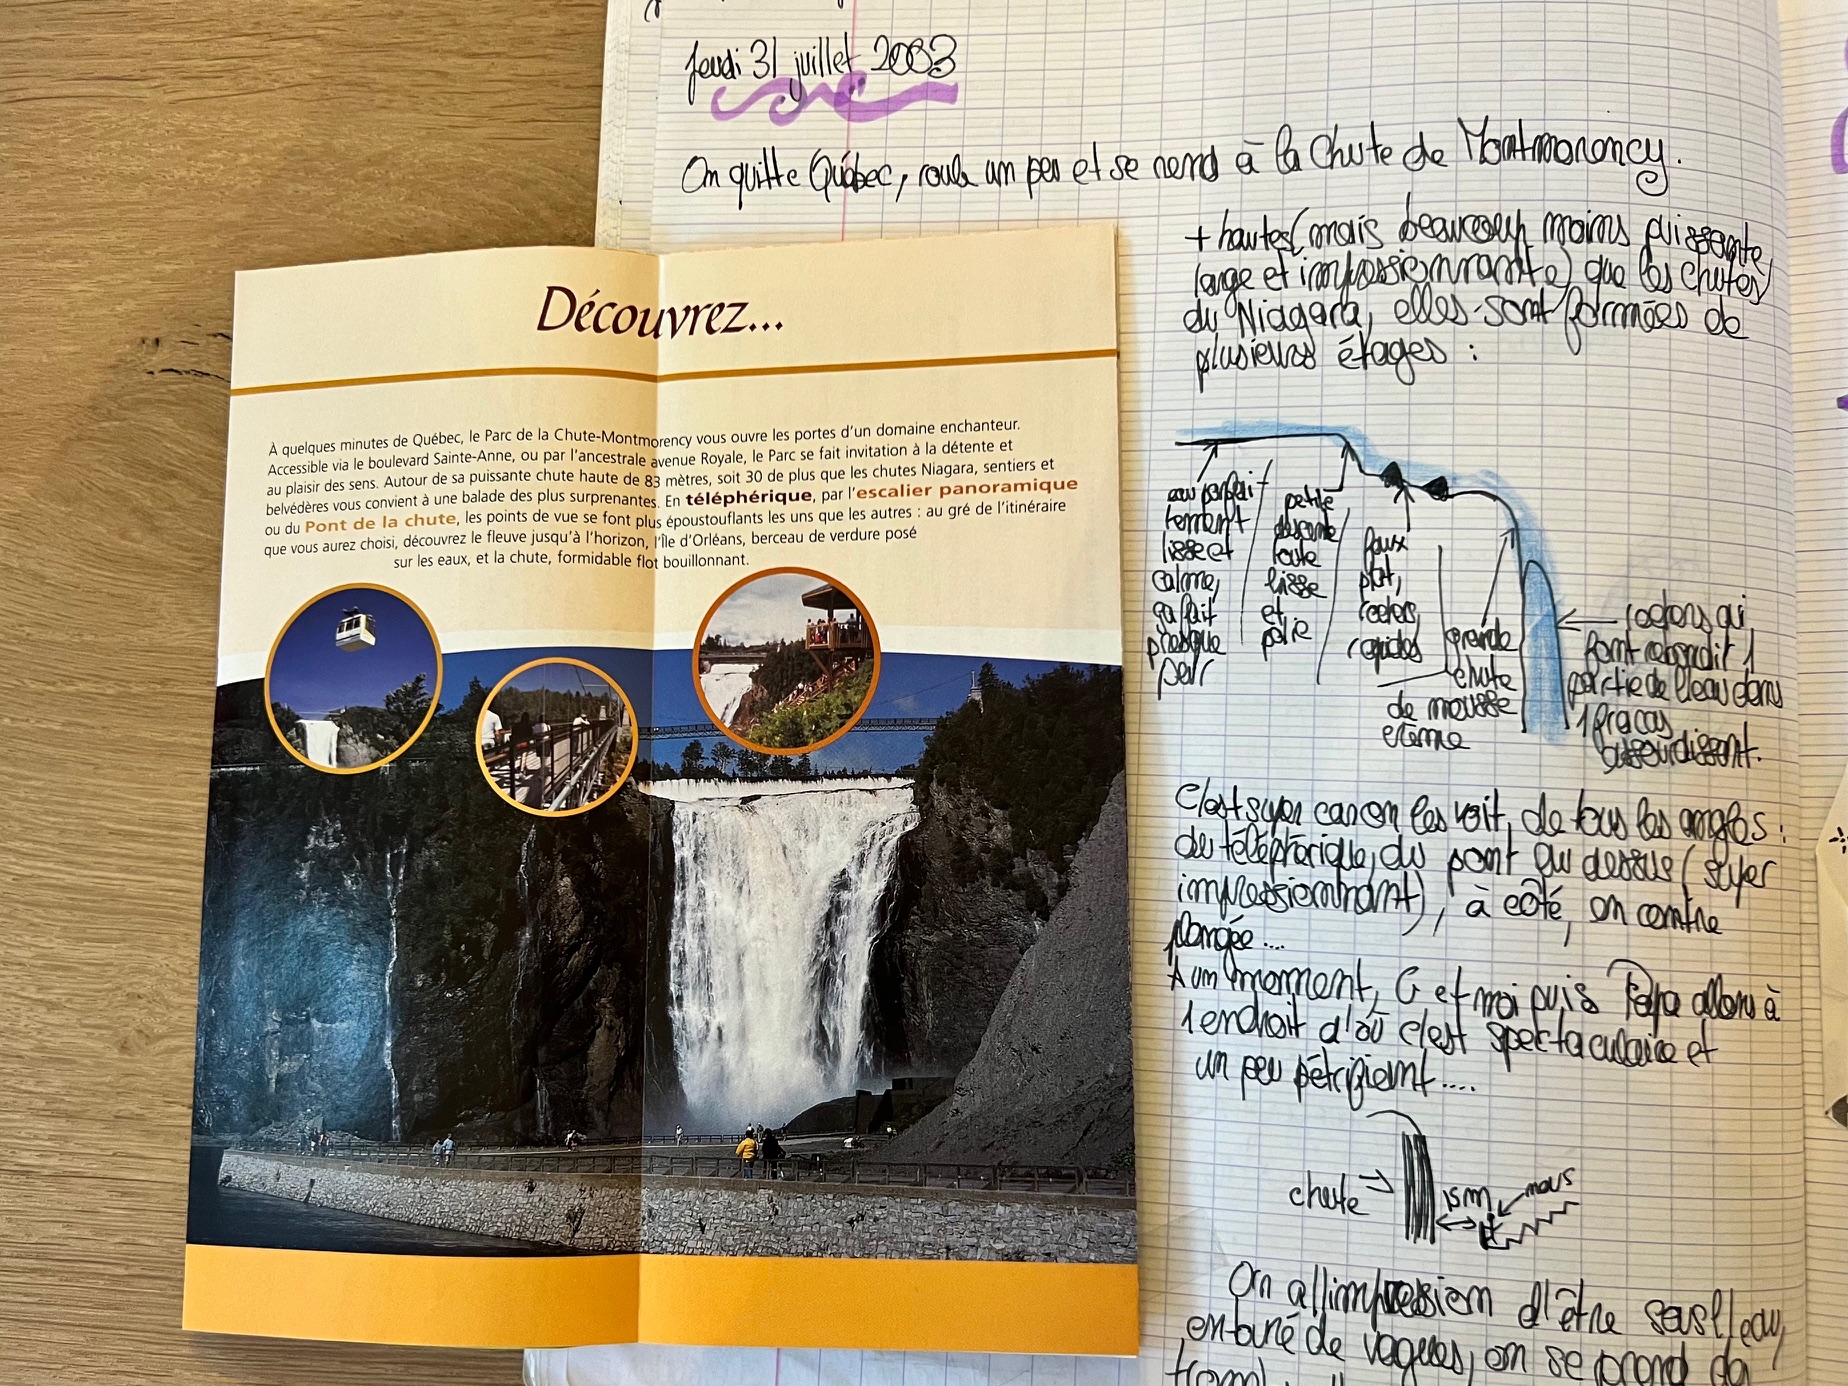 Jeudi 31 juillet 2003
On quitte Québec, roule un peu et se rend à la Chute de Montmorency.
+ hautes (mais beaucoup moins puissante
large et impressionnante) que les chutes
du Niagara, elles sont formées de
plusieurs étages :
eau parfai
tement
lisse et
calme,
ça fait
presque
peur
petite
descente
toute
lisse
et
polie
faux
plat,
rochers,
rapides
grande
chute
de mousse
crème
rochers qui
font rebondir 1
partie de l'eau dans
1 fracas
assourdissant.
C'est super car on les voit de tous les angles :
du téléphérique, du pont au dessus (super
impressionnant), à côté, en contre
plongée....
A un moment, C et moi puis Papa allons à
1 endroit d'où c'est spectaculaire et
un peu pétrifiant....
chute
15m
nous
On a l'impression d'être sous l'eau,
entouré de vagues, on se prend da
Découvrez...
À quelques minutes de Québec, le Parc de la Chute-Montmorency vous ouvre les portes d'un domaine enchanteur.
Accessible via le boulevard Sainte-Anne, ou par l'ancestrale avenue Royale, le Parc se fait invitation à la détente et
au plaisir des sens. Autour de sa puissante chute haute de 83 mètres, soit 30 de plus que les chutes Niagara, sentiers et
belvédères vous convient à une balade des plus surprenantes. En téléphérique, par l'escalier panoramique
ou du Pont de la chute, les points de vue se font plus époustouflants les uns que les autres : au gré de l'itinéraire
que vous aurez choisi, découvrez le fleuve jusqu'à l'horizon, l'Île d'Orléans, berceau de verdure posé
sur les eaux, et la chute, formidable flot bouillonnant.